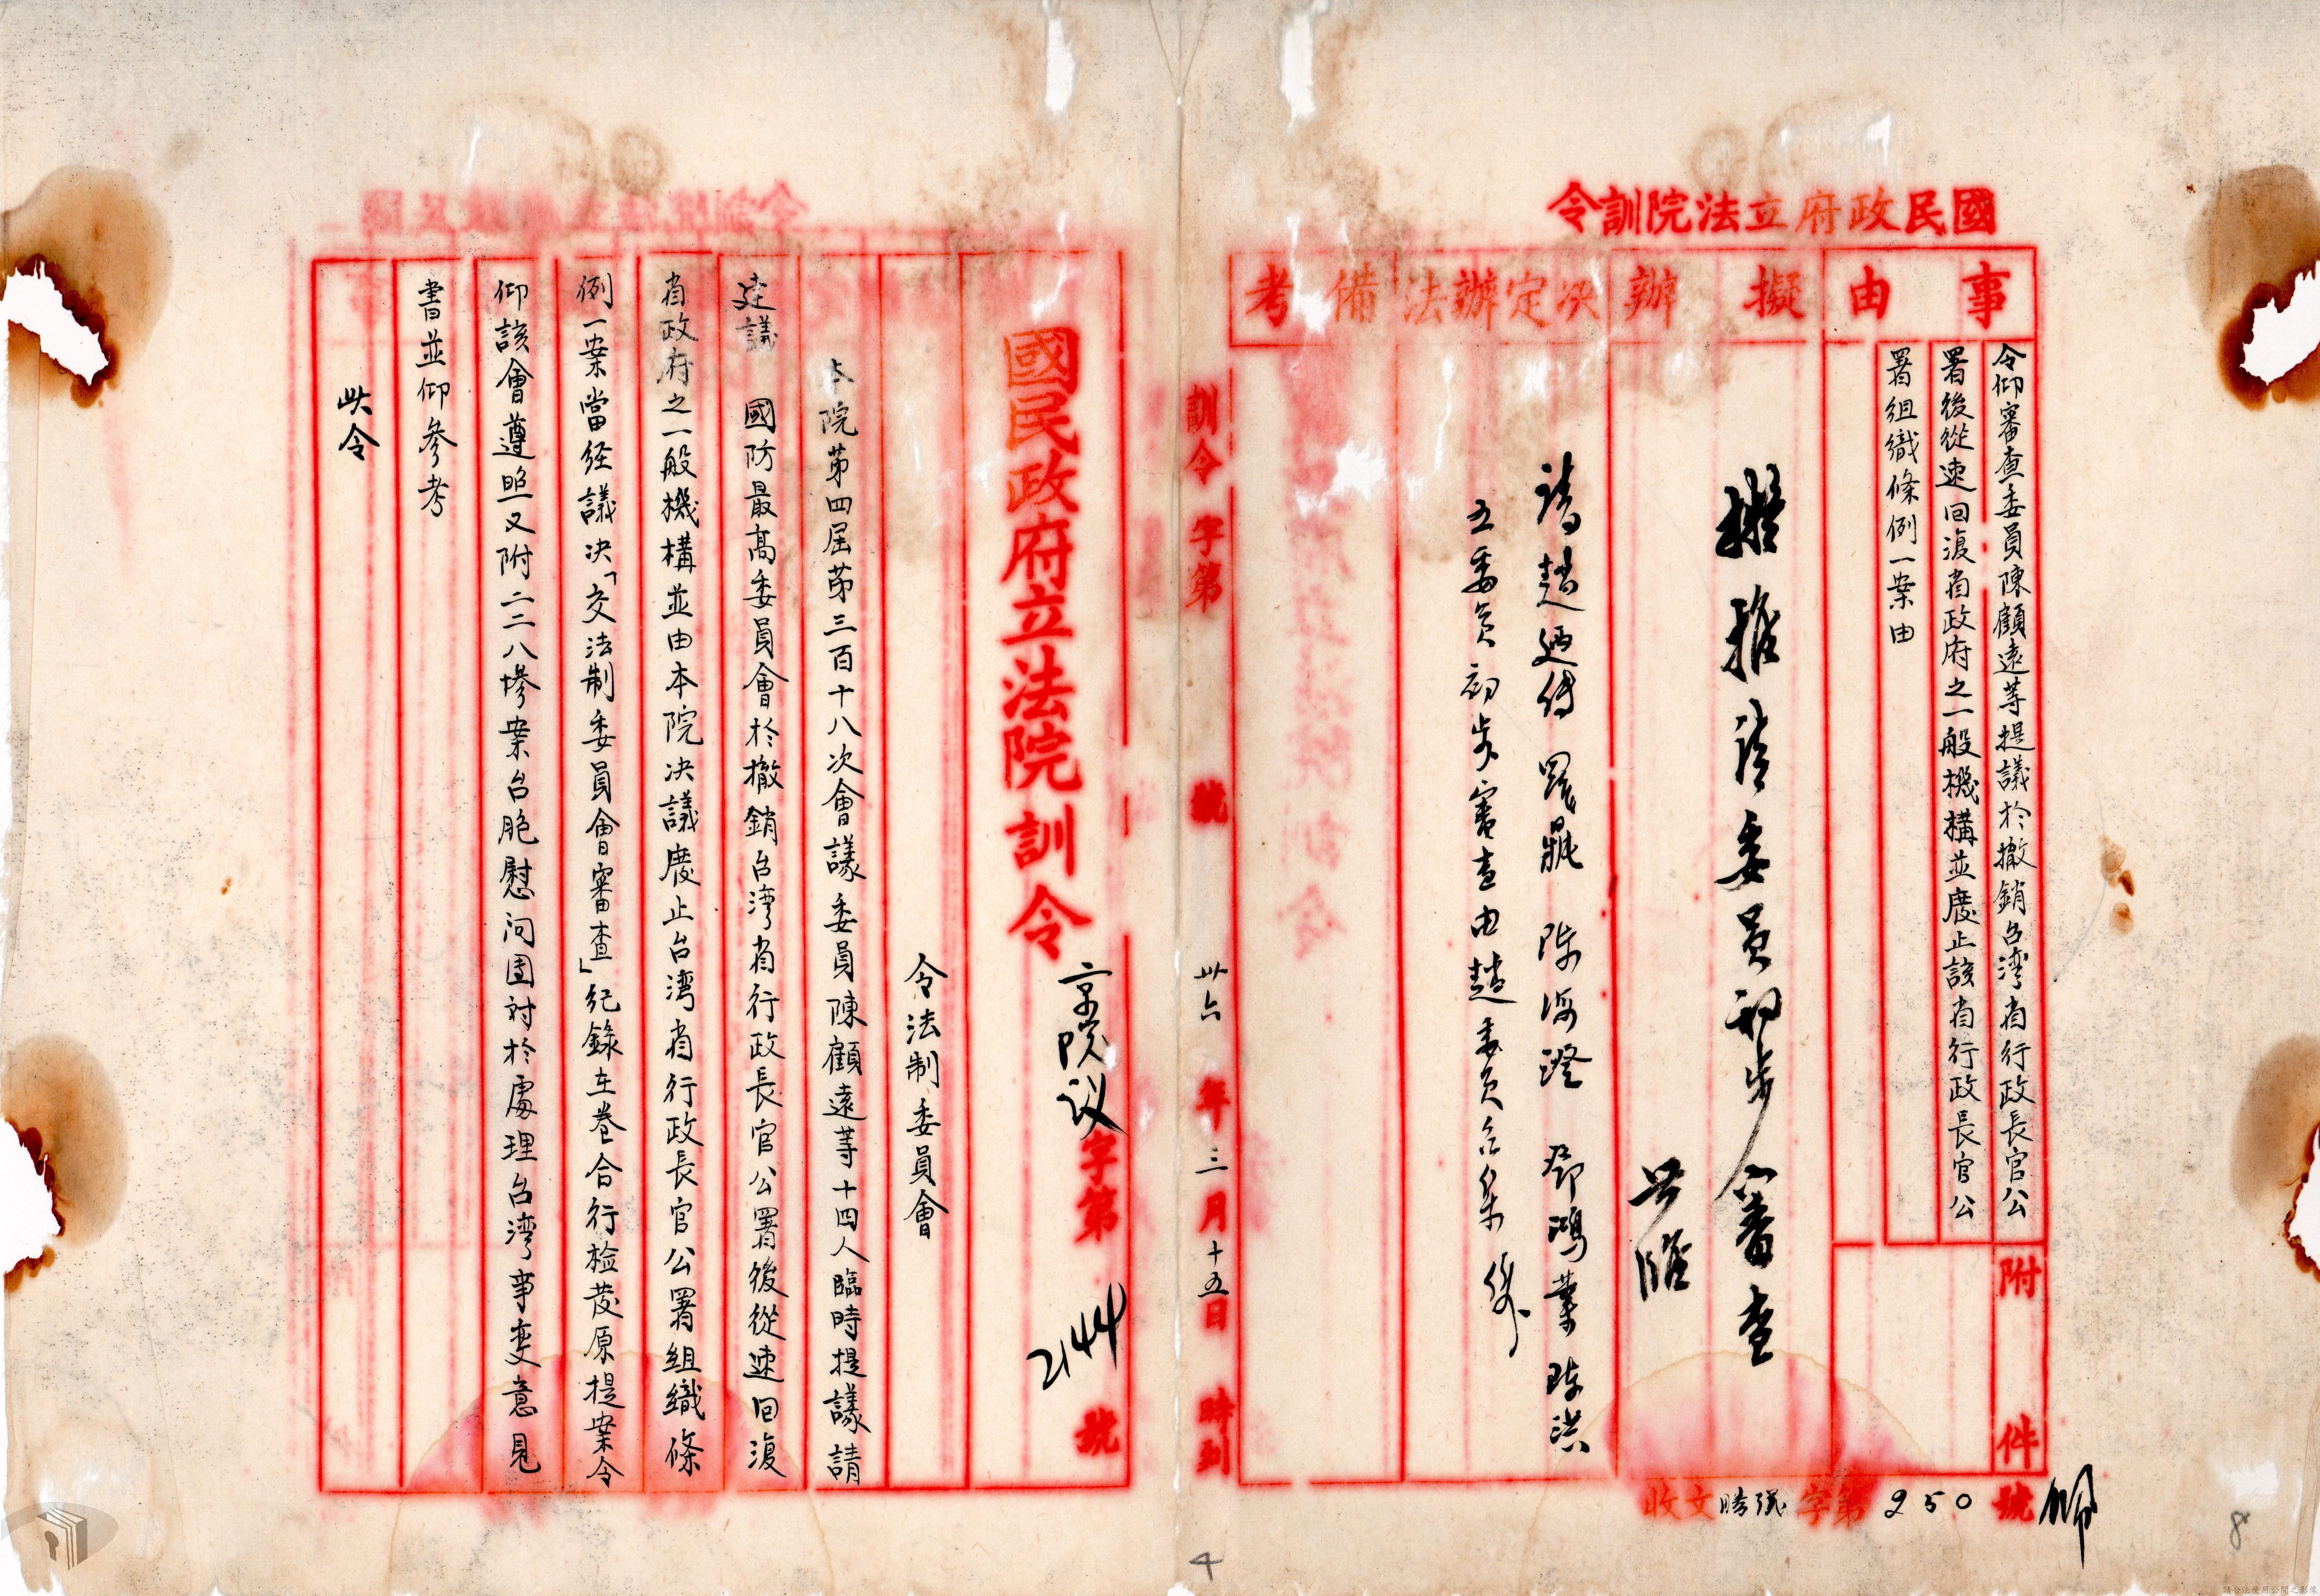 國民政府立法院訓令
事由
擬辦
決定辦法
備考
令仰審查委員陳顧遠等提議於撤銷台灣省行政長官公
署後從速回復省政府之一般機構並廢止該省行政長官公
署組織條例一案由
附件
擬推請委員初步審查
請趙廼傳 羅鼎 陳海澄 鄧鴻業 陳洪
五委員初步審查由趙委員召集
收文 字第250號
訓令 字第 號 卅六年三月十五日 時到
國民政府立法院訓令 京院议字第2144號
令法制委員會
本院第四屆第三百十八次會議委員陳顧遠等十四人臨時提議請
建議 國防最高委員會於撤銷台灣省行政長官公署後從速回復
省政府之一般機構並由本院決議廢止台灣省行政長官公署組織條
例一案當經議決「交法制委員會審查」紀錄在卷合行檢發原提案令
仰該會遵照又附二二八慘案台胞慰問團对於處理台灣事变意見
書並仰參考
此令
4
8